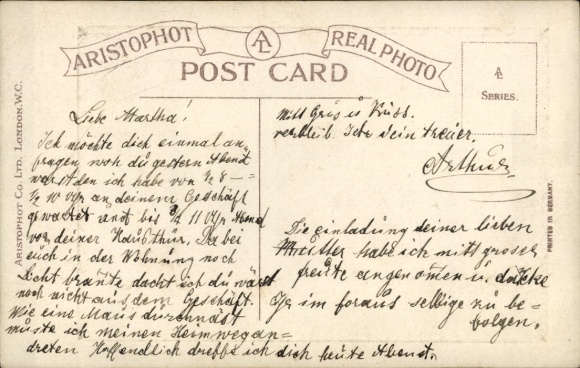 ARISTOPHOT REAL PHOTO
POST CARD
AL SERIES.
ARISTOPHOT CO. LTD. LONDON.W.C.
PRINTED IN GERMANY.
Liebe Martha!
Ich möchte dich einmal an-
fragen woh du gestern Abend
warst den ich habe von ½ 8 —
½ 10 Uhr an deinem Geschäft
gewartet und bis ¾ 11 Uhr Abend
vor deiner Haustühr. Da bei
euch in der Wohnung noch
Licht brante dacht ich du wärst
noch nicht aus dem Geschäft.
Wie eine Maus durchnäst
muste ich meinen Heimweg an=
dreten Hoffendlich dreffe ich dich heute Abend.
Mitt Grus u Küss.
verbleib. Ich dein treuer.
Arthur
Die einladung deiner lieben
Mutter habe ich mitt grosser
freude angenomen u.
im foraus selbige zu be-
folgen.